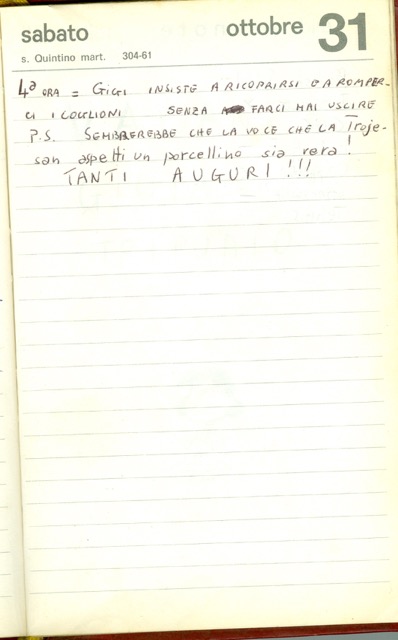 sabato ottobre 31
s. Quintino mart. 304-61
4ª ORA = GIGI INSISTE A RICOPRIRSI E A ROMPER-
CI I COGLIONI SENZA FARCI MAI USCIRE
P.S. SEMBREREBBE CHE LA VOCE CHE LA Troje-
san aspetti un porcellino sia vera!
TANTI AUGURI!!!